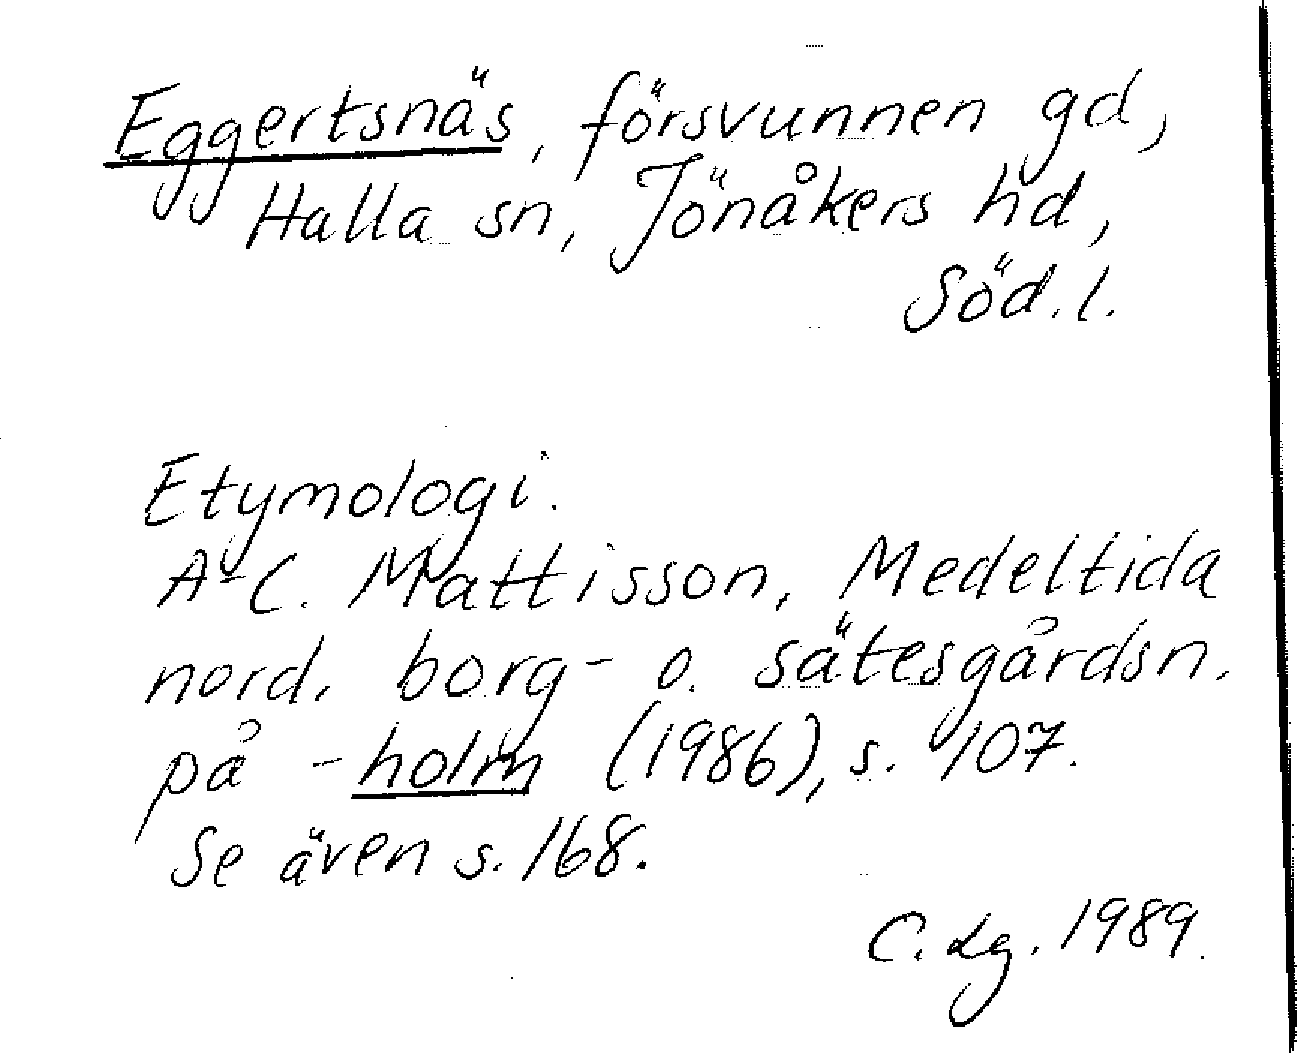 Eggertsnäs, försvunnen gd,
Halla sn, Jönåkers hd,
Söd. l.
Etymologi.
A-C. Mattisson, Medeltida
nord. borg- o. sätesgårdsn.
på -holm (1986), s. 107.
Se även s. 168.
C. Lg. 1989.